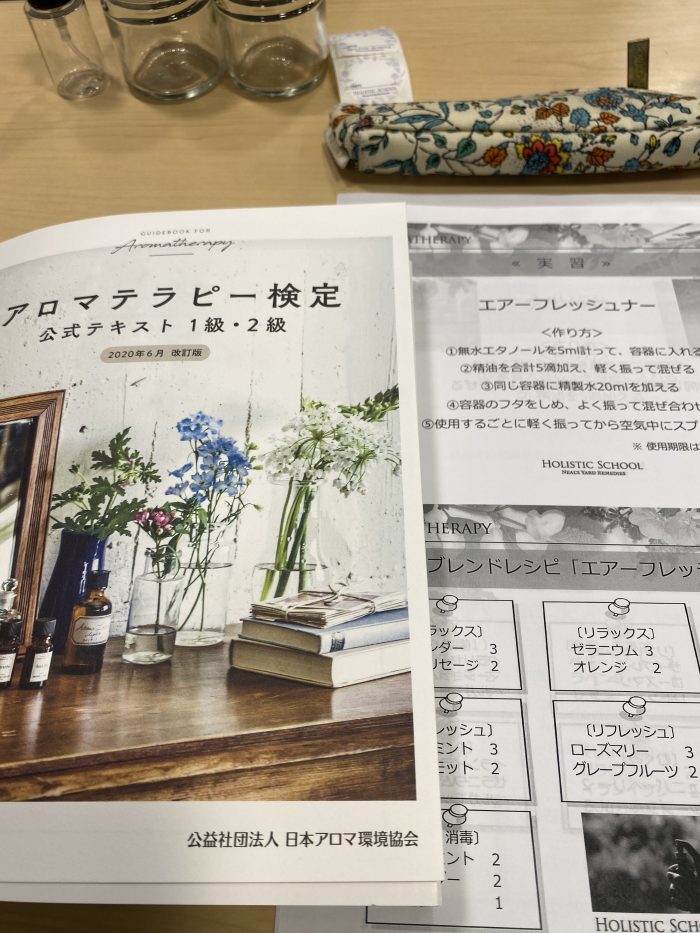 HOLISTIC SCHOOL
GUIDEBOOK FOR
Aromatherapy
アロマテラピー検定
公式テキスト 1級・2級
2020年6月 改訂版
公益社団法人 日本アロマ環境協会
THERAPY
« 実習 »
エアーフレッシュナー
<作り方>
①無水エタノールを5ml計って、容器に入れる
②精油を合計5滴加え、軽く振って混ぜる
③同じ容器に精製水20mlを加える
④容器のフタをしめ、よく振って混ぜ合わせ
⑤使用するごとに軽く振ってから空気中にスプ
※ 使用期限は
HOLISTIC SCHOOL
NEAL'S YARD REMEDIES
THERAPY
ブレンドレシピ「エアーフレッシ
ラックス〕
ンダー 3
リセージ 2
〔リラックス〕
ゼラニウム 3
オレンジ 2
レッシュ〕
ミント 3
モット 2
〔リフレッシュ〕
ローズマリー 3
グレープフルーツ 2
消毒〕
ント 2
ー 2
1
HOLISTIC SCH